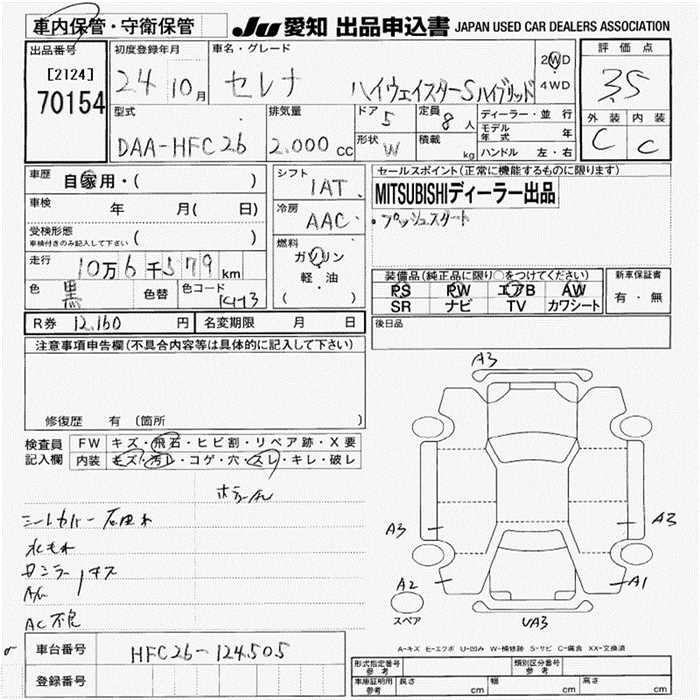 車内保管・守衛保管 JU 愛知 出品申込書 JAPAN USED CAR DEALERS ASSOCIATION
出品番号 [2124] 70154
初度登録年月 24 10月
車名・グレード セレナ ハイウェイスターS ハイブリッド
2WD
4WD
評価点 3.5
外装 内装
C C
型式 DAA-HFC26
排気量 2.000 cc
ドア 5
定員 8 人
形状 W
積載 kg
ディーラー・並行
モデル年式 年
ハンドル 左・右
車歴 自家用・( )
車検 年 月( 日)
受検形態 ( )
車検付きのみ記入して下さい
走行 10万6千579km
色 黒 色替 色コード
シフト 1AT
冷房 AAC
燃料 ガソリン
軽・油
( )
セールスポイント(正常に機能するものに限ります)
MITSUBISHIディーラー出品
・プッシュスタート
装備品(純正品に限り○をつけてください)
PS PW エアB AW
SR ナビ TV カワシート
新車保証書
有・無
R券 12,160 円 名変期限 月 日
後日品
注意事項申告欄(不具合内容等は具体的に記入して下さい)
修復歴 有 (箇所 )
検査員記入欄
FW キズ・飛石・ヒビ割・リペア跡・X要
内装 キズ・汚レ・コゲ・穴・スレ・キレ・破レ
シートカバー
AC不良
A3
A3
A3
A2
A1
UA3
スペア
A-キズ E-エクボ U-凹み W-補修跡 S-サビ C-腐食 XX-交換済
車台番号 HFC26-124505
登録番号
形式指定番号 参考
類別区分番号 参考
車庫証明用 参考 長さ cm 幅 cm 高さ cm